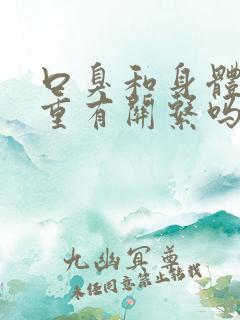 口臭和身體
重有關繫嗎
九幽冥尊
未任同意禁止轉載